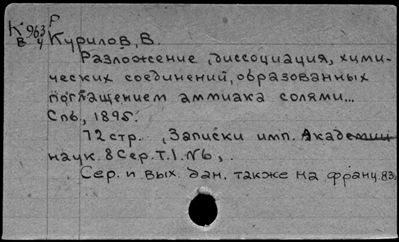 К 963 Р
В 4
Курилов, В.
Разложение, диссоциация, хими-
ческих соединений, образованных
поглащением аммиака солями...
Спб, 1895.
72 стр. , Записки имп. Академии
наук. 8 Сер. Т.1. №6, .
Сер. и вых. дан. также на франц. 83,